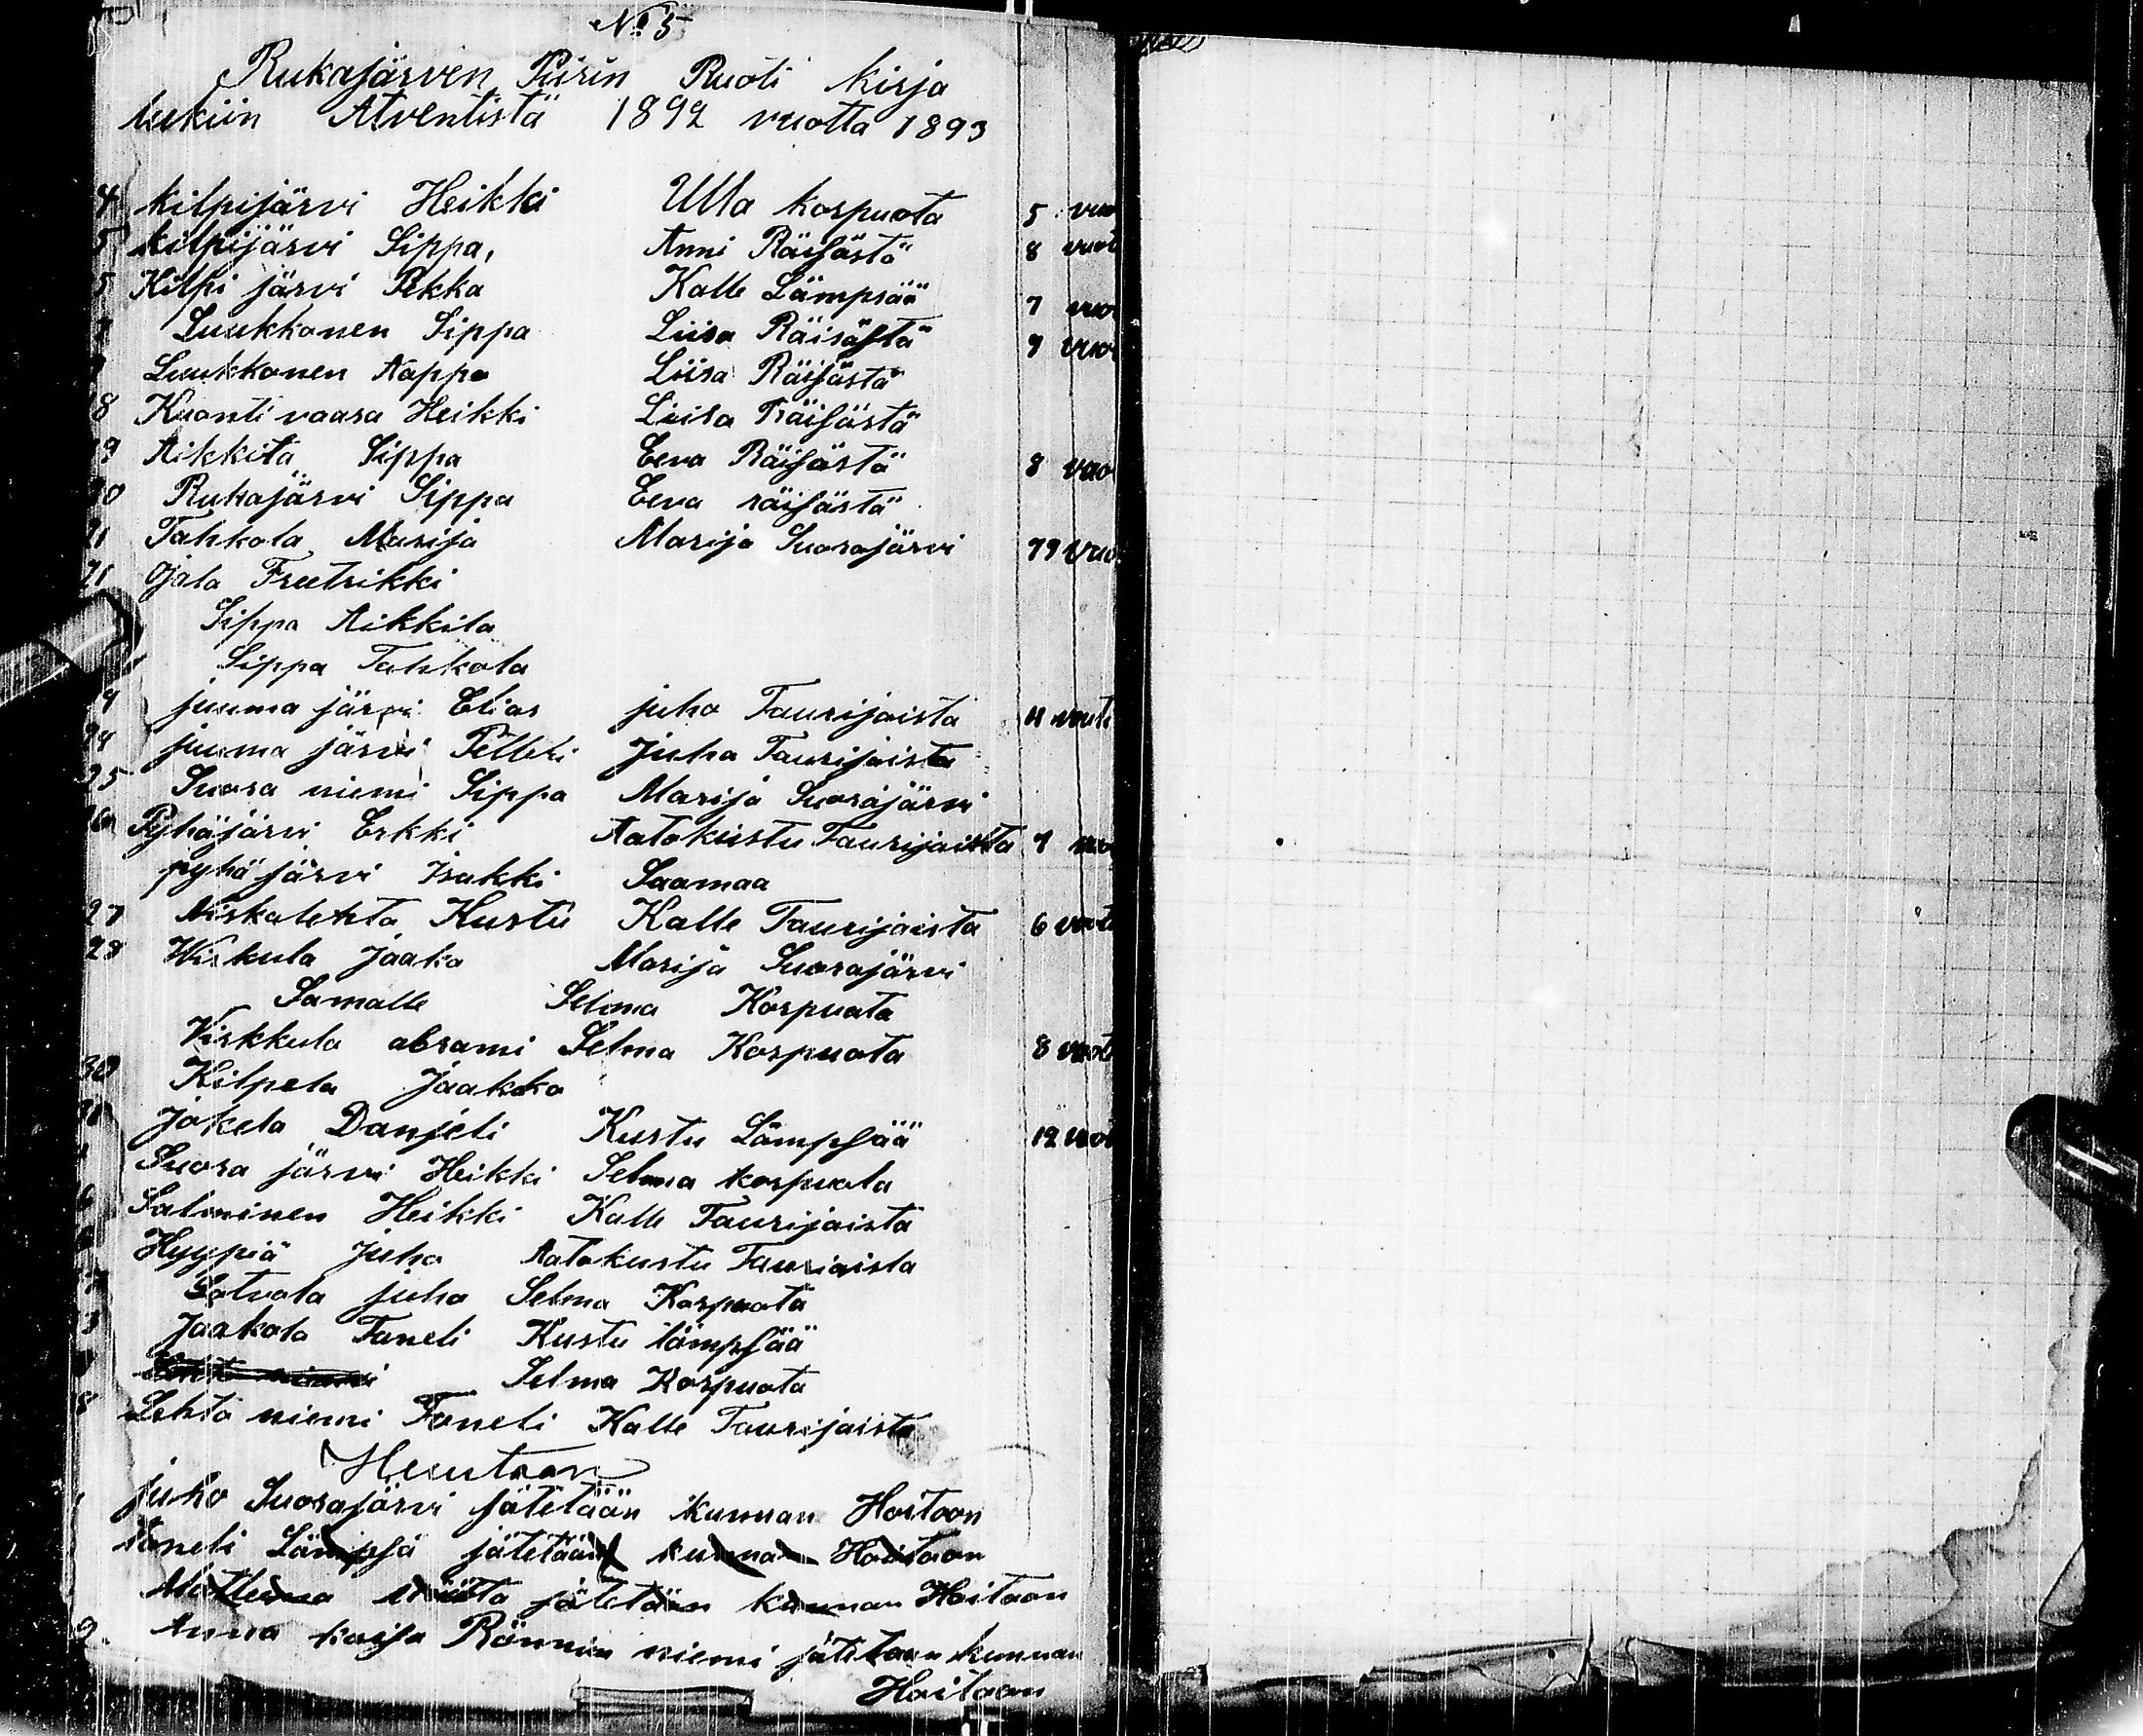 No 5
Rukajärven Piirin Ruoti kirja
lukiin Atventistä 1892 vuotta 1893
4 kilpijärvi Heikki Ulla korpuota 5 vuo
5 kilpijärvi Sippa, Anni Räisästä 8 vuot
5 Kilpi järvi Pekka Kalle Lämpsää 7 vuo
Luukkonen Sippa Liisa Räisästä 9 vuo
Luukkonen Aappo Liisa Räisästä
8 Kuontivaara Heikki Liisa Räisästä
9 Aikkila Sippa Eeva Räisästä 8 vuo
20 Rukajärvi Sippa Eeva räisästä
21 Tahkola Marija Marija Suorajärvi 79 vuo
21 Ojala Freetrikki
Sippa Aikkila
Sippa Tahkola
juuma järvi Elias juho Taurijaista 11 vuoti
24 juuma järvi Petteri Juho Taurijaista
25 Suora niemi Sippa Marija Suorajärvi
26 Pyhäjärvi Erkki Aatokustu Taurijaista 7 vuo
pyhäjärvi Isakki Saamaa
27 Niskalehto Kustu Kalle Taurijaista 6 vuoti
28 Wirkula Jaako Marija Suorajärvi
Samalle Selma Korpuota
Virkkula abrami Selma Korpuota 8 vuoti
30 Kilpela Jaakko
31 Jokela Danjeli Kustu Lämpsää 12 vuot
Suora järvi Heikki Selma korpuota
Salminen Heikki Kalle Taurijaista
Hyypiä Juho Aatokustu Tauriaista
juho Selma Korpuota
Jaakola Taneli Kustu lämpsää
Selma Korpuota
8 Lehto niemi Taneli Kalle Taurijaista
Huutoon
juho Suorajärvi jätetään kunnan Hoitoon
taneli Lämpsä jätetään kunnan Hoitoon
jätetään kunnan Hoitoon
Anna kaisa niemi jätetään kunnan
Hoitoon